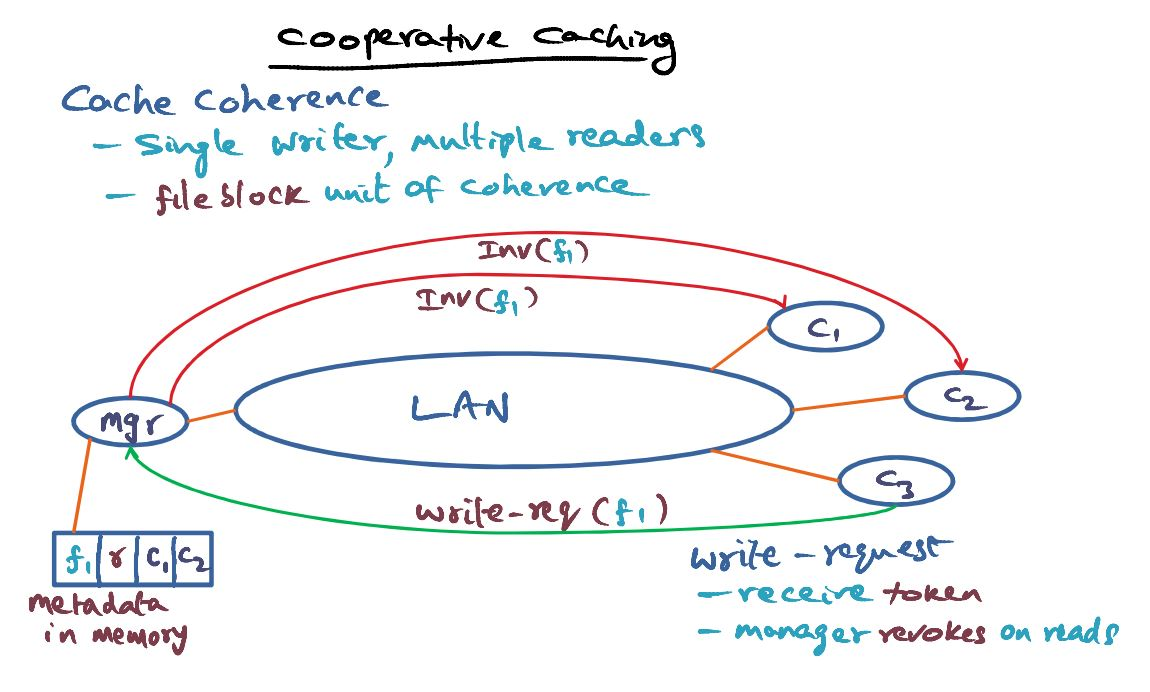 Cooperative Caching
Cache Coherence
- Single writer, multiple readers
- file block unit of coherence
Inv(f1)
Inv(f1)
C1
C2
mgr
LAN
C3
write-req (f1)
f1 r C1 C2
metadata
in memory
write - request
- receive token
- manager revokes on reads